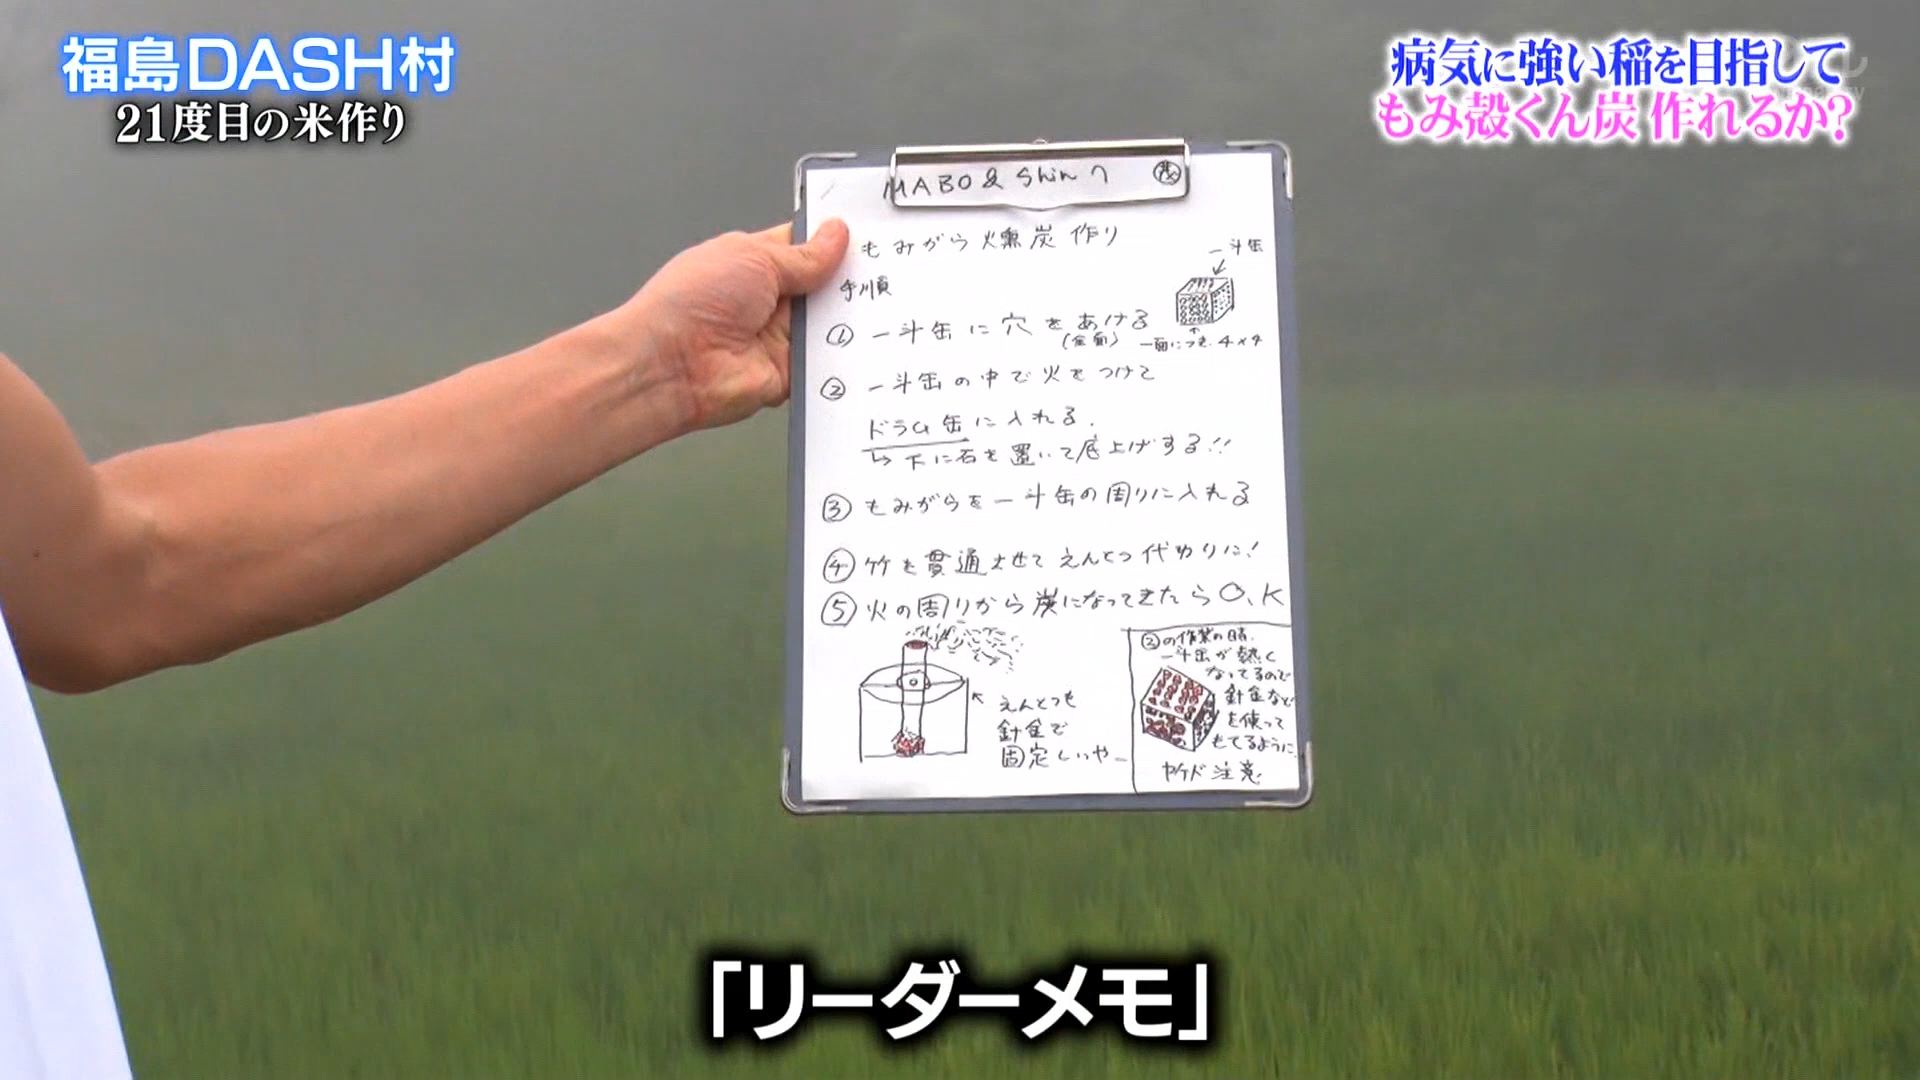 福島DASH村
21度目の米作り
病気に強い稲を目指して
もみ殻くん炭 作れるか?
MABO & Shin へ
もみがら燻炭作り
手順
一斗缶
① 一斗缶に穴をあける
(全面)
一面につき 4×4
② 一斗缶の中で火をつけて
ドラム缶に入れる.
↳ 下に石を置いて底上げする!!
③ もみがらを一斗缶の周りに入れる
④ 竹を貫通させてえんとつ代わりに!
⑤ 火の周りから炭になってきたらO,K
えんとつも
針金で
固定しいやー
②の作業の時.
一斗缶が熱く
なってるので
針金など
を使って
もてるように.
ヤケド注意
「リーダーメモ」